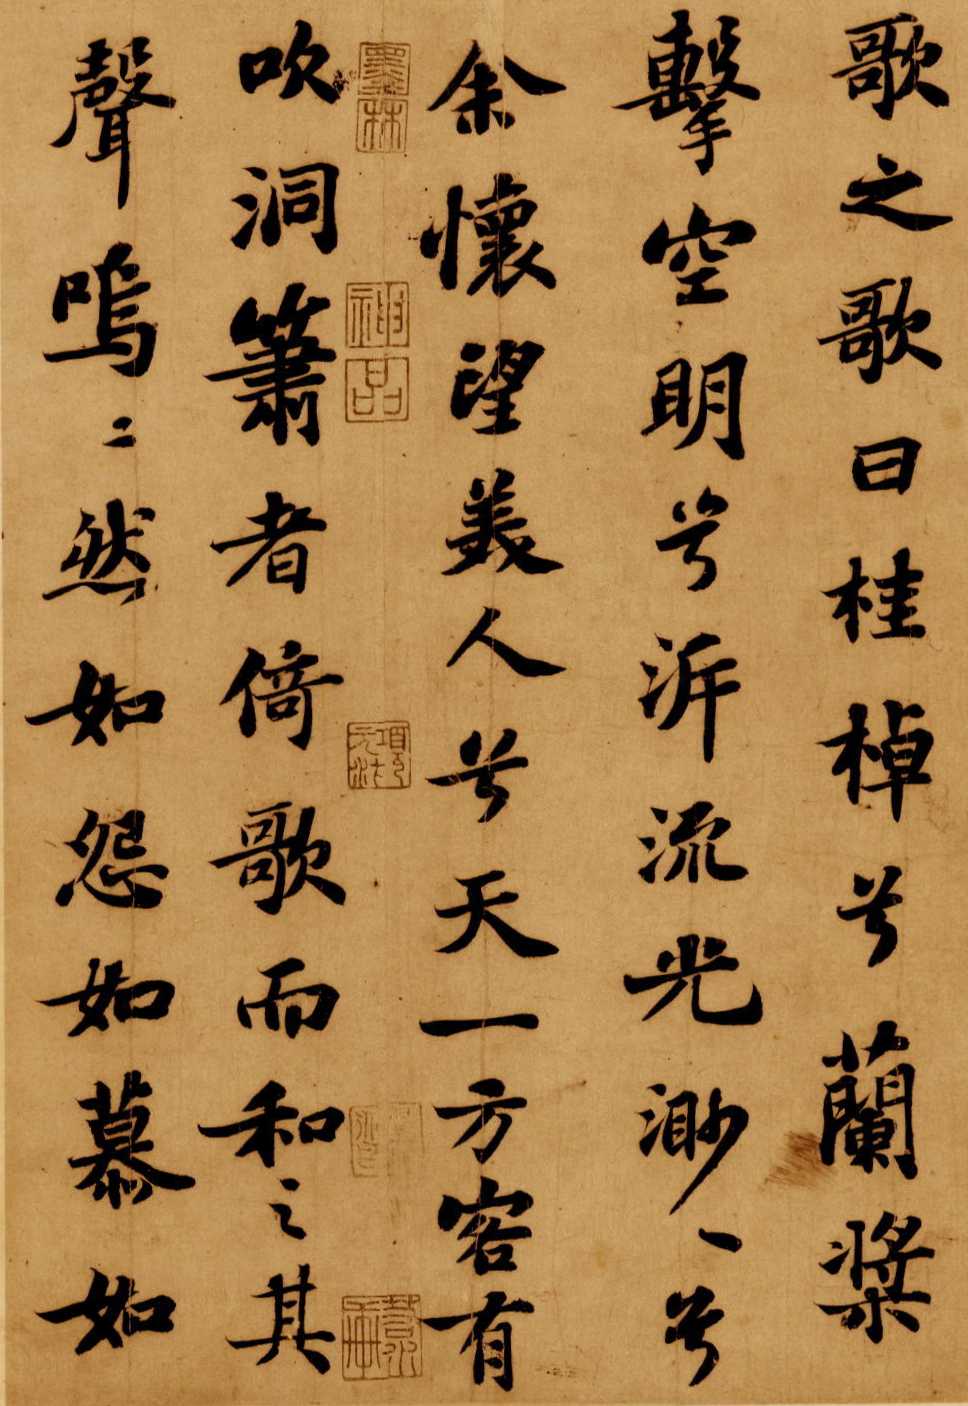 歌之歌曰桂棹兮蘭槳
擊空明兮泝流光渺〻兮
余懷望美人兮天一方客有
吹洞簫者倚歌而和之其
聲嗚〻然如怨如慕如
墨林
神品